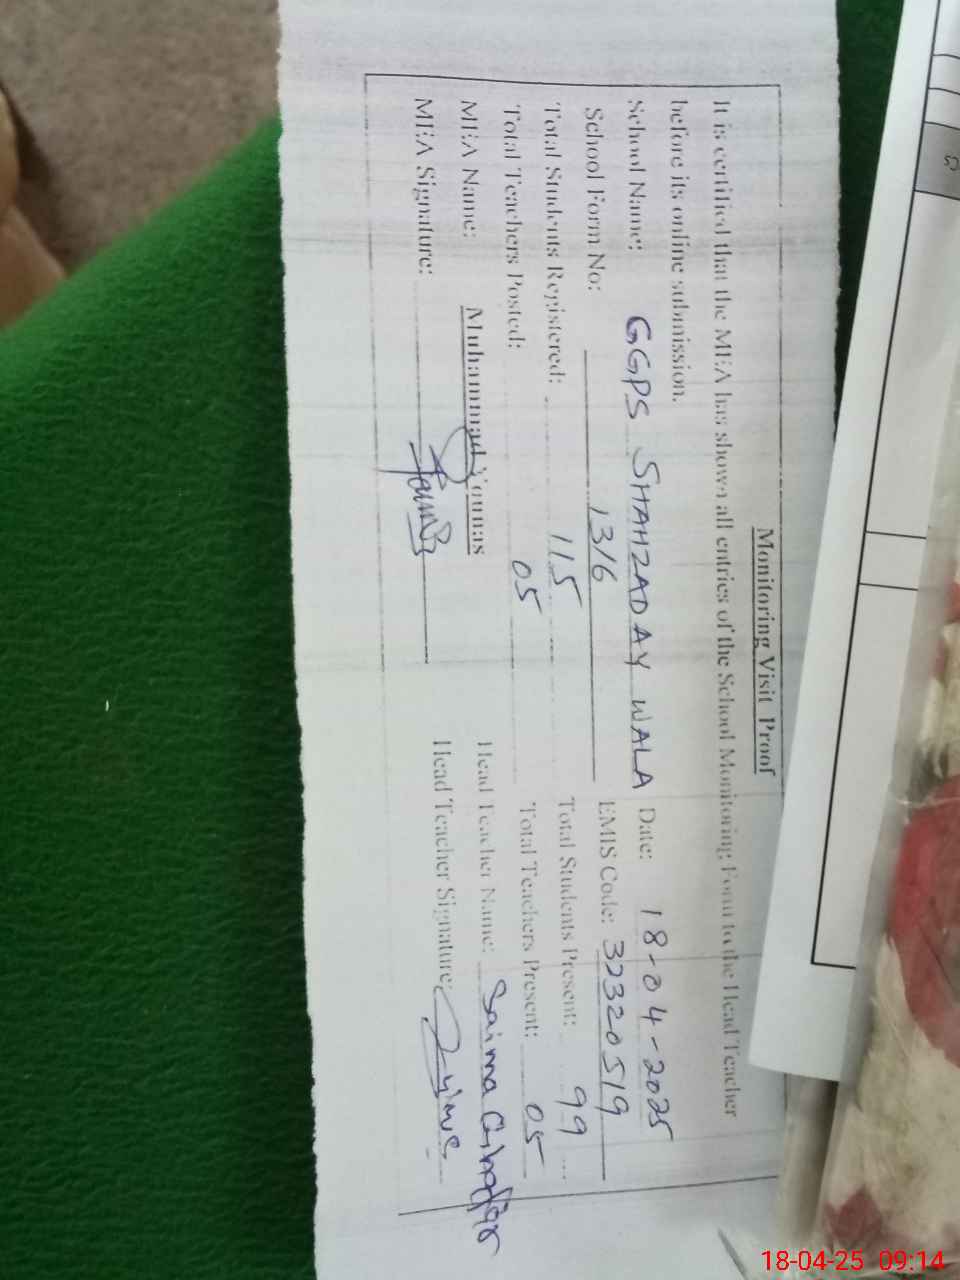 Monitoring Visit Proof
It is certified that the MEA has shown all entries of the School Monitoring Form to the Head Teacher
before its online submission.
School Name: GGPS SHAHZADAY WALA Date: 18-04-2025
School Form No: 1316 EMIS Code: 32320519
Total Students Registered: 115 Total Students Present: 99
Total Teachers Posted: 05 Total Teachers Present: 05
MEA Name: Muhammad Younas Head Teacher Name: Saima Ghaffar
MEA Signature: Head Teacher Signature:
18-04-25 09:14